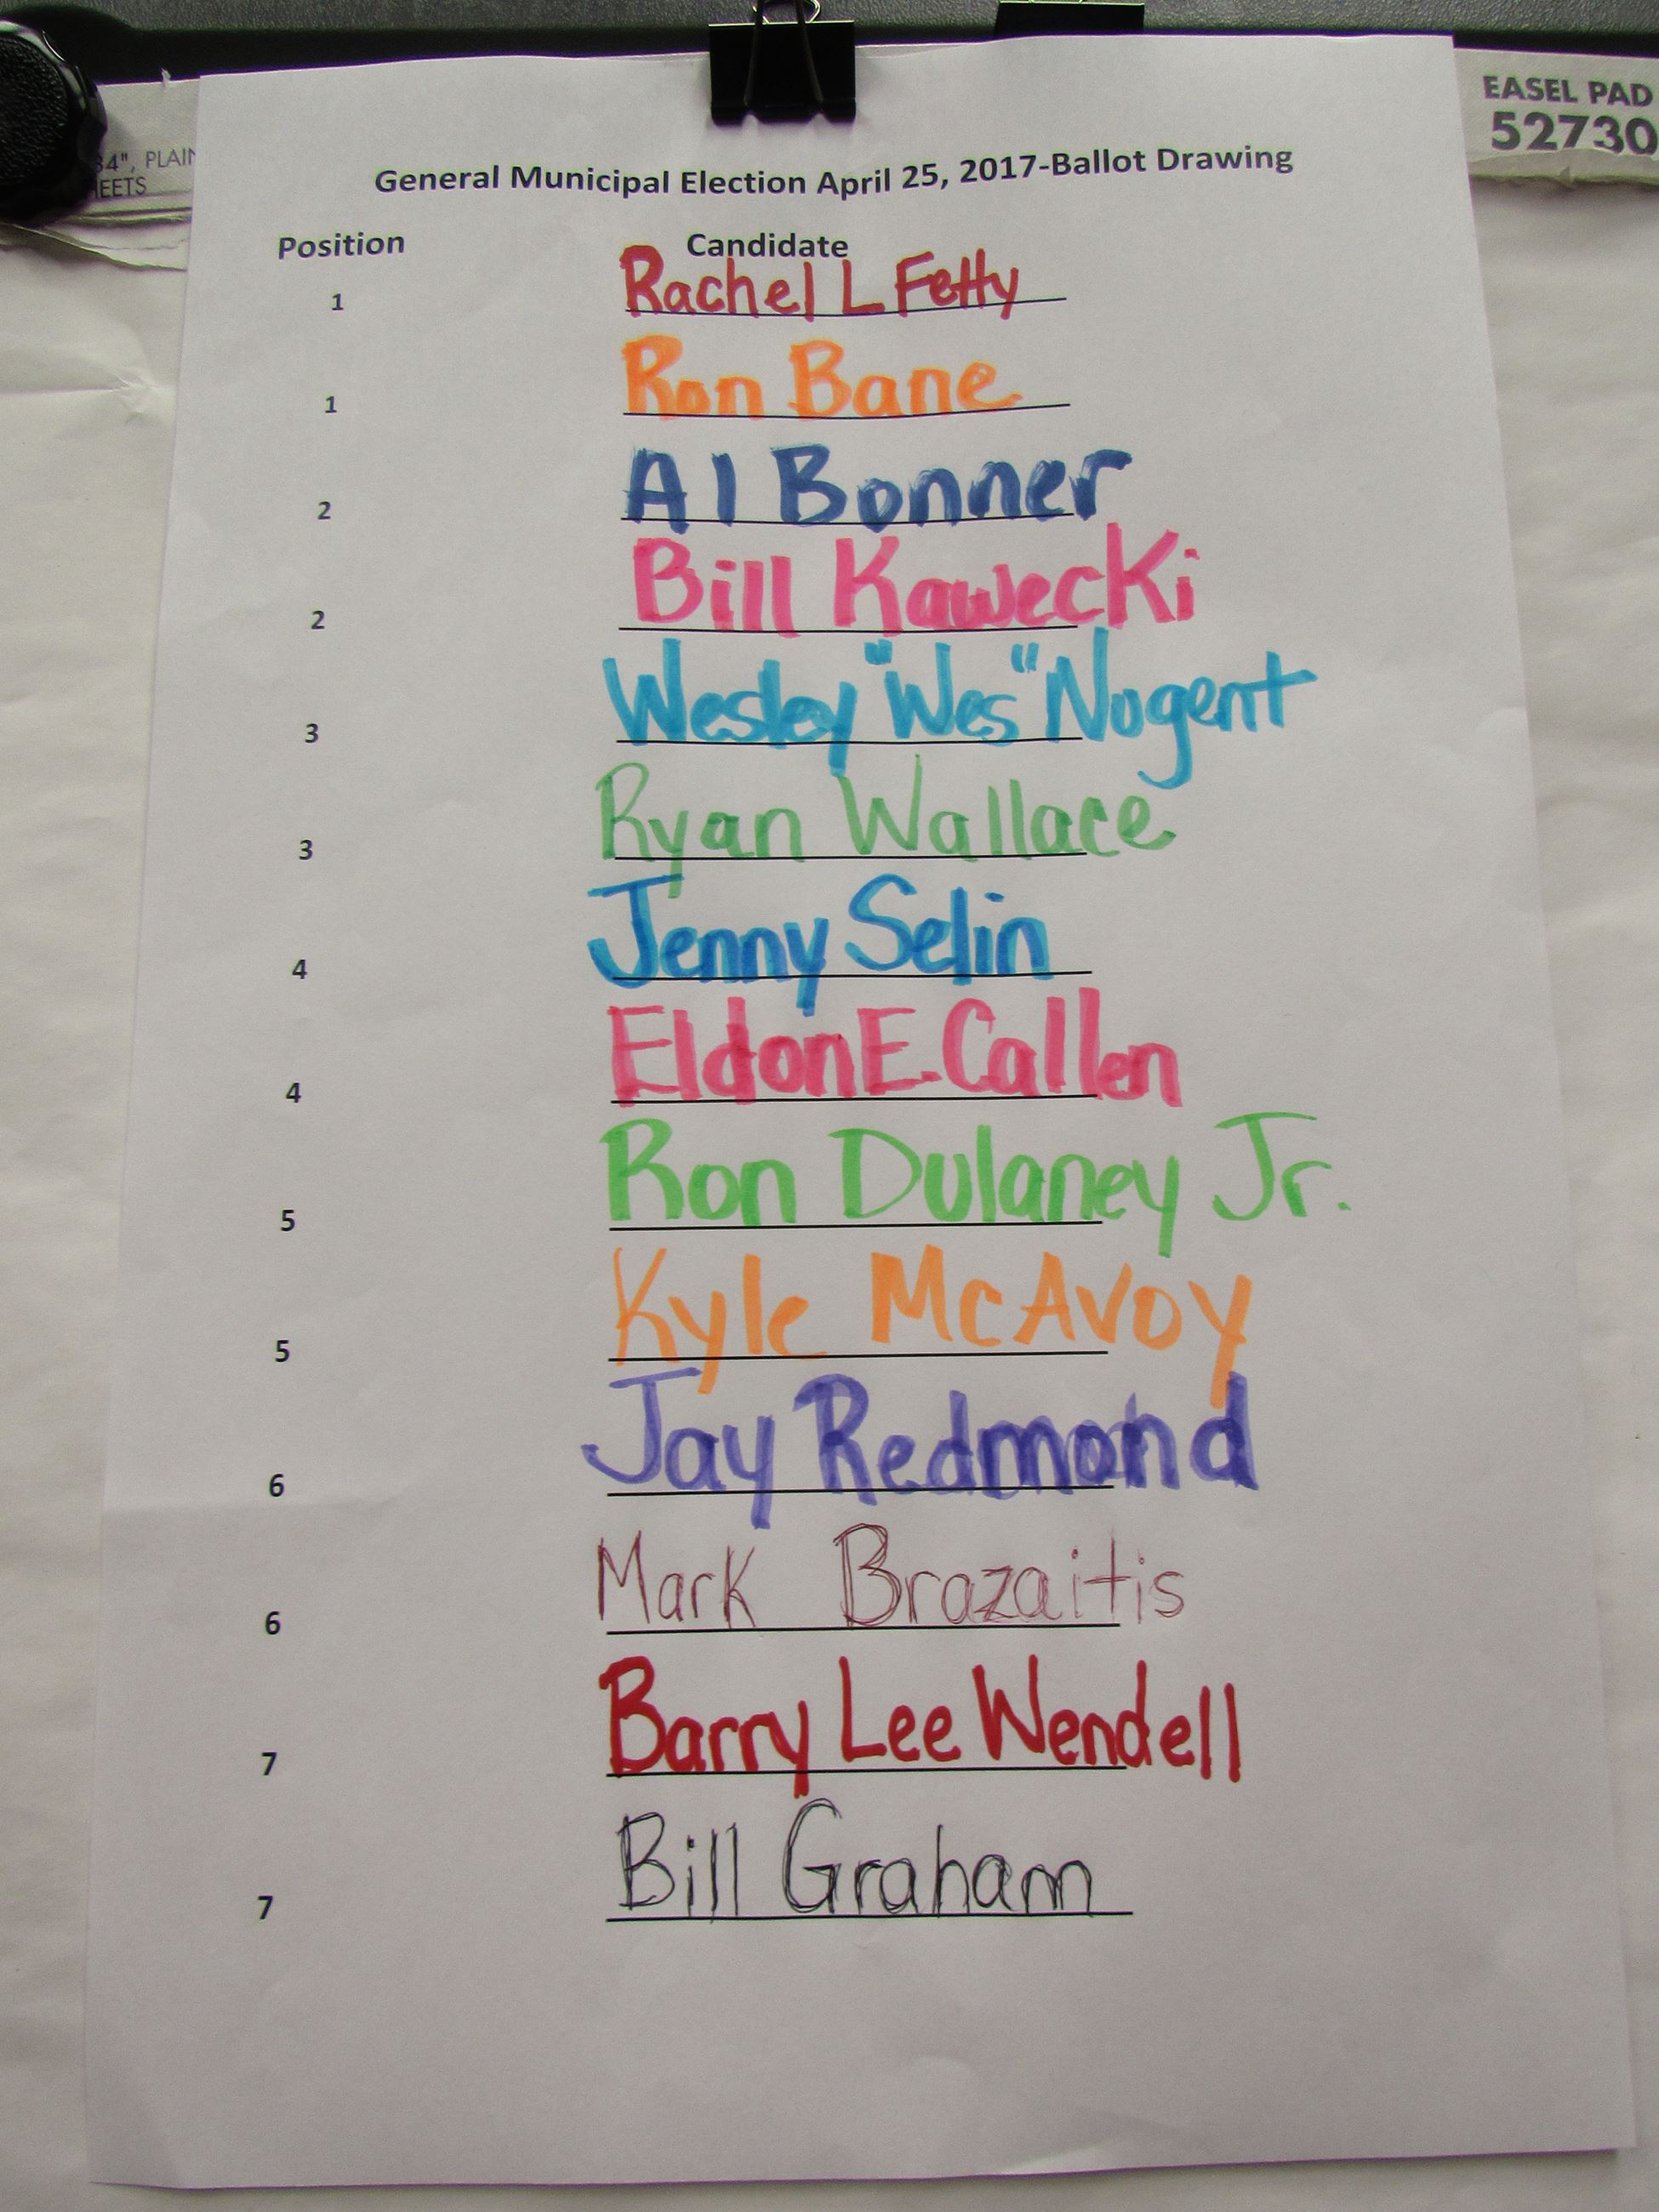 EASEL PAD
52730
34", PLAIN
HEETS
General Municipal Election April 25, 2017-Ballot Drawing
Position Candidate
1 Rachel L Fetty
1 Ron Bane
2 Al Bonner
2 Bill Kawecki
3 Wesley "Wes" Nugent
3 Ryan Wallace
4 Jenny Selin
4 Eldon E. Callen
5 Ron Dulaney Jr.
5 Kyle McAvoy
6 Jay Redmond
6 Mark Brazaitis
7 Barry Lee Wendell
7 Bill Graham